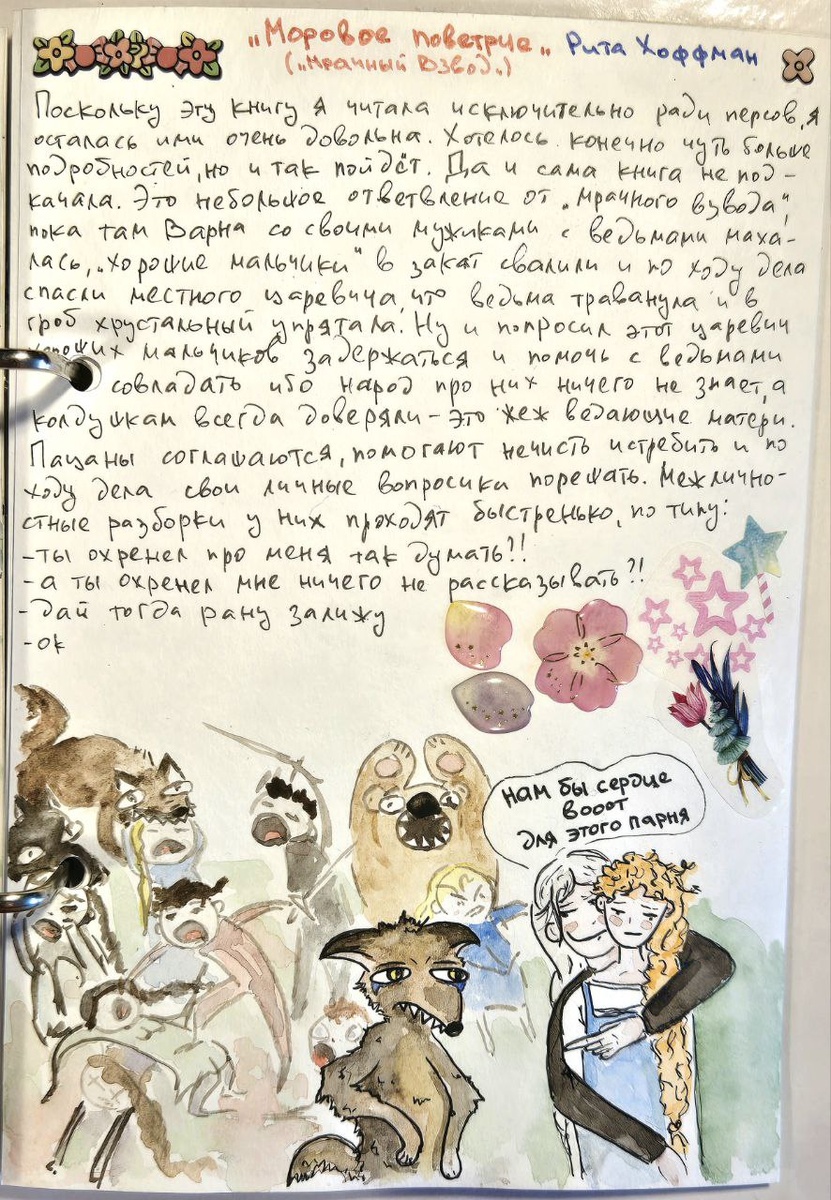 „Моровое поветрие„ Рита Хоффман
(„Мрачный Взвод„)
Поскольку эту книгу я читала исключительно ради персов, я
осталась ими очень довольна. Хотелось конечно чуть больше
подробностей, но и так пойдёт. Да и сама книга не под-
качала. Это небольшое ответвление от „Мрачного взвода",
пока там Варна со своими мужиками с ведьмами маха-
лась, „хорошие мальчики" в закат свалили и по ходу дела
спасли местного царевича, что ведьма траванула и в
гроб хрустальный упрятала. Ну и попросил этот царевич
хороших мальчиков задержаться и помочь с ведьмами
совладать ибо народ про них ничего не знает, а
колдушкам всегда доверяли - это жеж ведающие матери.
Пацаны соглашаются, помогают нечисть истребить и по
ходу дела свои личные вопросики порешать. Межлично-
стные разборки у них проходят быстренько, по типу:
- ты охренел про меня так думать?!
- а ты охренел мне ничего не рассказывать?!
- дай тогда рану залижу
- ок
нам бы сердце
вооот
для этого парня